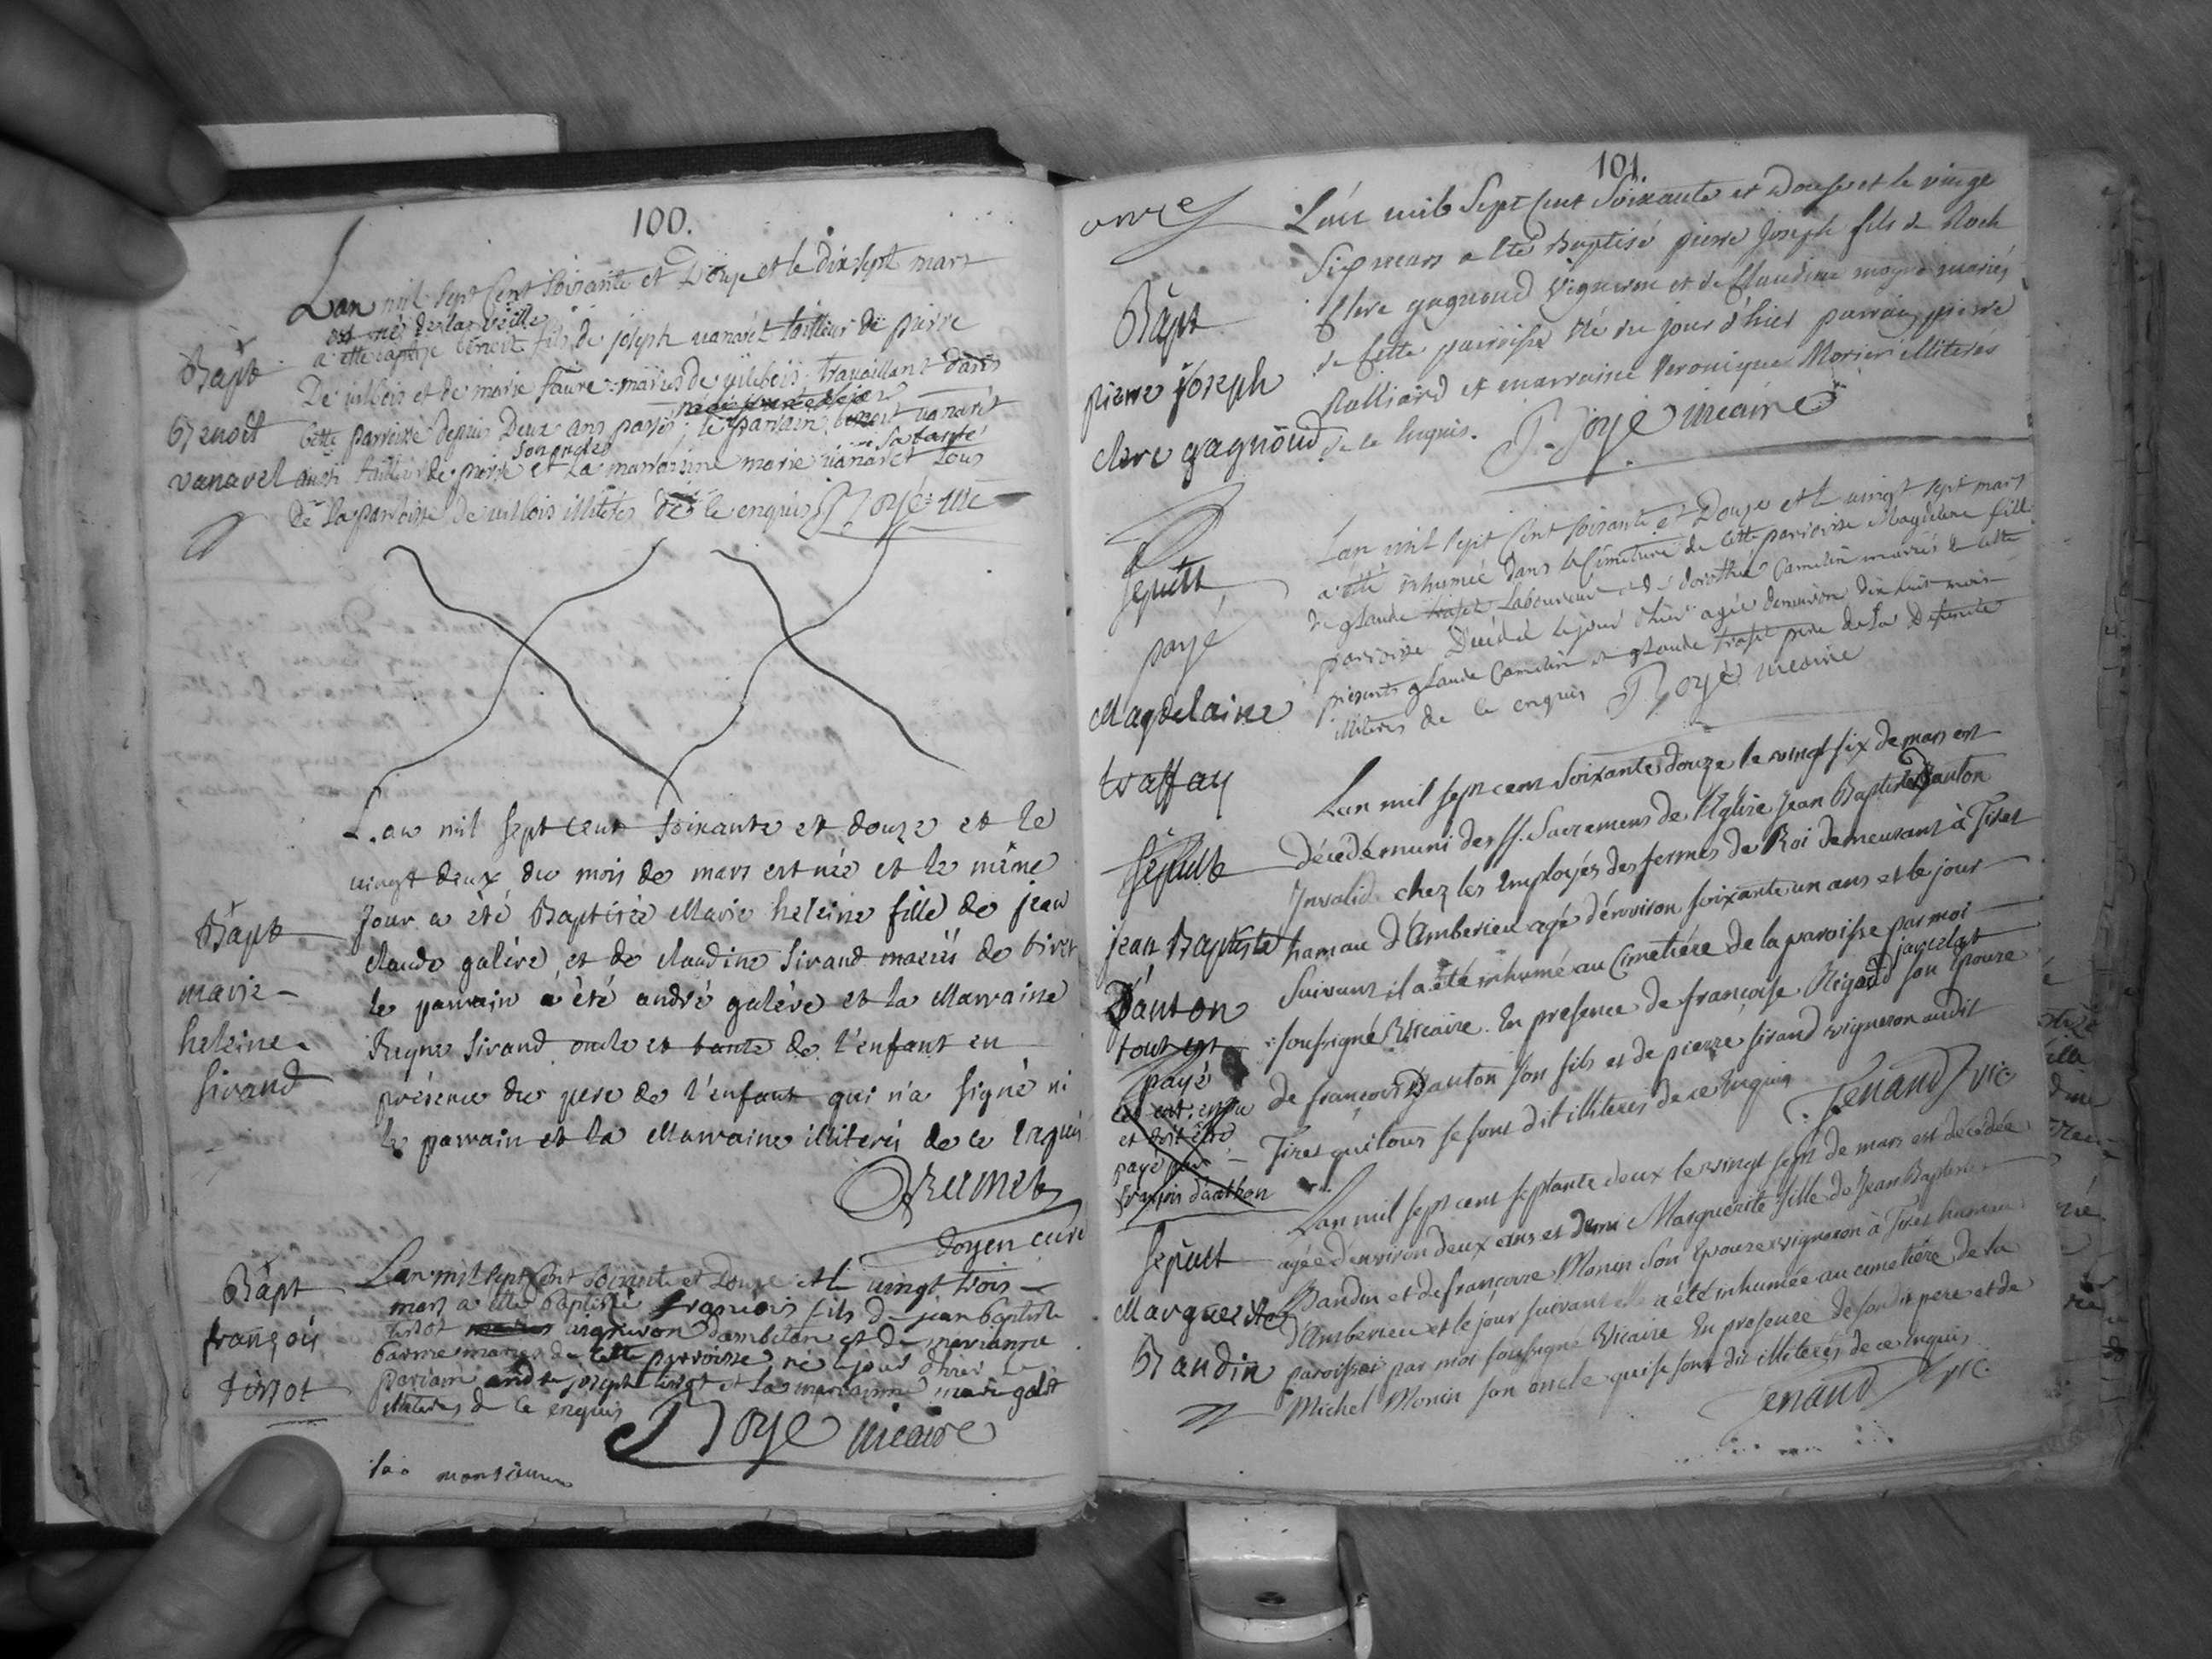 100.
Lan mil sept Cent soixante et Douze et le dix sept mars
est né de la veille
a etté baptise benoit fils de joseph vanaret tailleur de pierre
De vilbois et de marie faure mariés de vilbois travaillant dans
Cette parroisse depuis Deux ans passés ; le parrain benoit vanaret
son oncle
sa tante
aussi tailleur de pierre et La marraine marie vanaret tous
de la parroisse de vilbois illiterés de ce enquis J. Joyé vic
Bapt
Benoit
vanaret
L'an mil sept cent soixante et douze et le
vingt deux du mois de mars est née et le même
jour a été Baptisée Marie heleine fille de jean
claude galéve et de claudine Sirand mariés de tiret
le parrain a été andré galéve et la Marraine
Reyne Sirand oncle et tante de l'enfant en
présence du pere de l'enfant qui n'a signé ni
le parrain et la Marraine illiterés de ce Enquis
doyen curé
Bapt
marie
heleine
sirand
Lan mil sept Cent Soixante et Douze et le vingt trois
mars a etté baptisé françois fils de jean baptiste
tissot vigneron dambutan et de
mariés de cette parroisse né le jour d'hier le
parrain andre joseph tissot et la marraine marie
illiteres de ce enquis
J Joye vicaire
Bapt
françois
tissot
monsieur
101.
onze
L'an mil Sept Cent Soixante et Douse et le vingt
Six mars a été Baptisé pierre Joseph fils de Roch
Clere gagnoud vigneron et de Claudine moyne mariés
de Cette parroisse né du jour d'hier parrain pierre
Ralliard et marraine Veronique Morier illiterés
de ce Enquis. J. Joyé vicaire
Bapt
pierre joseph
clere gagnoud
Lan mil sept Cent soixante et Douze et le vingt sept mars
a etté inhumée dans le Cimetiere de Cette parroisse Magdelene fille
de glaude trafet Laboureur et de dorothée Camelin mariés de cette
parroisse Decedée le jour d'hier agée denviron dix huit mois
presents glaude Camelin et glaude trafet pere de la Defunte
illiteres de ce enquis J Joyé vicaire
Sepult
payé
Magdelaine
traffay
Lan mil sept cent soixante douze le vingt six de mars est
décédé muni des SS. Sacremens de l'Eglise Jean Baptiste Dauton
Invalide chez les Employés des fermes de Roi demeurant à Tiret
hameau d'Amberieu agé d'environ soixante un ans et le jour
suivant il a été inhumé au Cimetiére de la paroisse par moi
jaquelot
soussigné Vicaire. En presence de françoise Rigaud son Epouze
de françois Dauton son fils et de pierre sirand vigneron audit
Tiret qui tous se sont dit illiterés de ce Enquis
Tenand vic
Sepult
jean Baptiste
Dauton
tout est
payé
et doit être
payé par
françois dauthon
Lan mil sept cent septante deux le vingt sept de mars est décédée
agée d'environ deux ans et demi Marguerite fille de Jean Baptiste
Baudin et de françoise Monin son Epouze vigneron à Tiret hameau
d'Amberieu et le jour suivant elle a été inhumée au cimetiére de la
paroisse par moi soussigné Vicaire En presence de son dit pere et de
Michel Monin son oncle qui se sont dit illiterés de ce Enquis
Tenand vic.
Sepult
Marguerite
Baudin